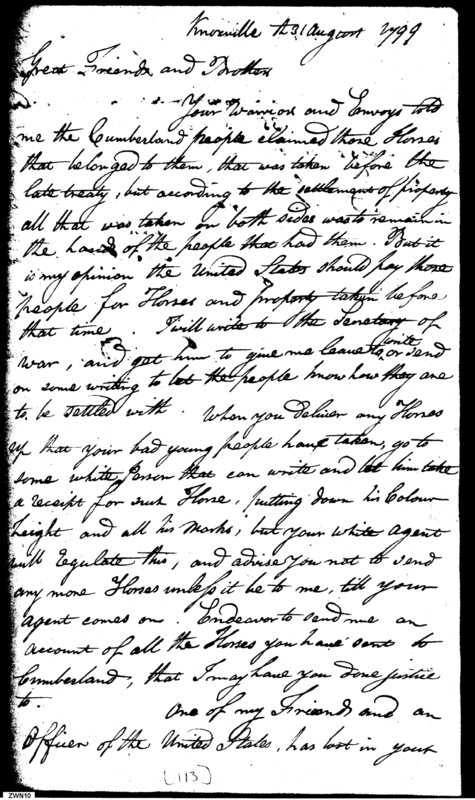 Knoxville the 31 August 1799
Great Friends and Brothers
Your Warriors and Envoys told
me the Cumberland people claimed those Horses
that belonged to them, that was taken before the
late treaty, but according to the settlement of property
all that was taken on both sides was to remain in
the hands of the people that had them. But it
is my opinion the United States should pay those
people for Horses and property taken before
that time. I will write to the Secretary of
war, and get him to give me leave to write or send
on some writing to let the people know how they are
to be settled with. When you deliver any Horses
up that your bad young people have taken, go to
some white Person that can write and let him take
a receipt for such Horse, putting down his Colour
height and all his Marks; but your white agent
will regulate this, and advise you not to send
any more Horses unless it be to me, till your
agent comes on. Endeavor to send me an
account of all the Horses you have sent to
Cumberland, that I may have you done justice
to.
One of my Friends and an
Officer of the United States, has lost in your
[113]
ZWN10